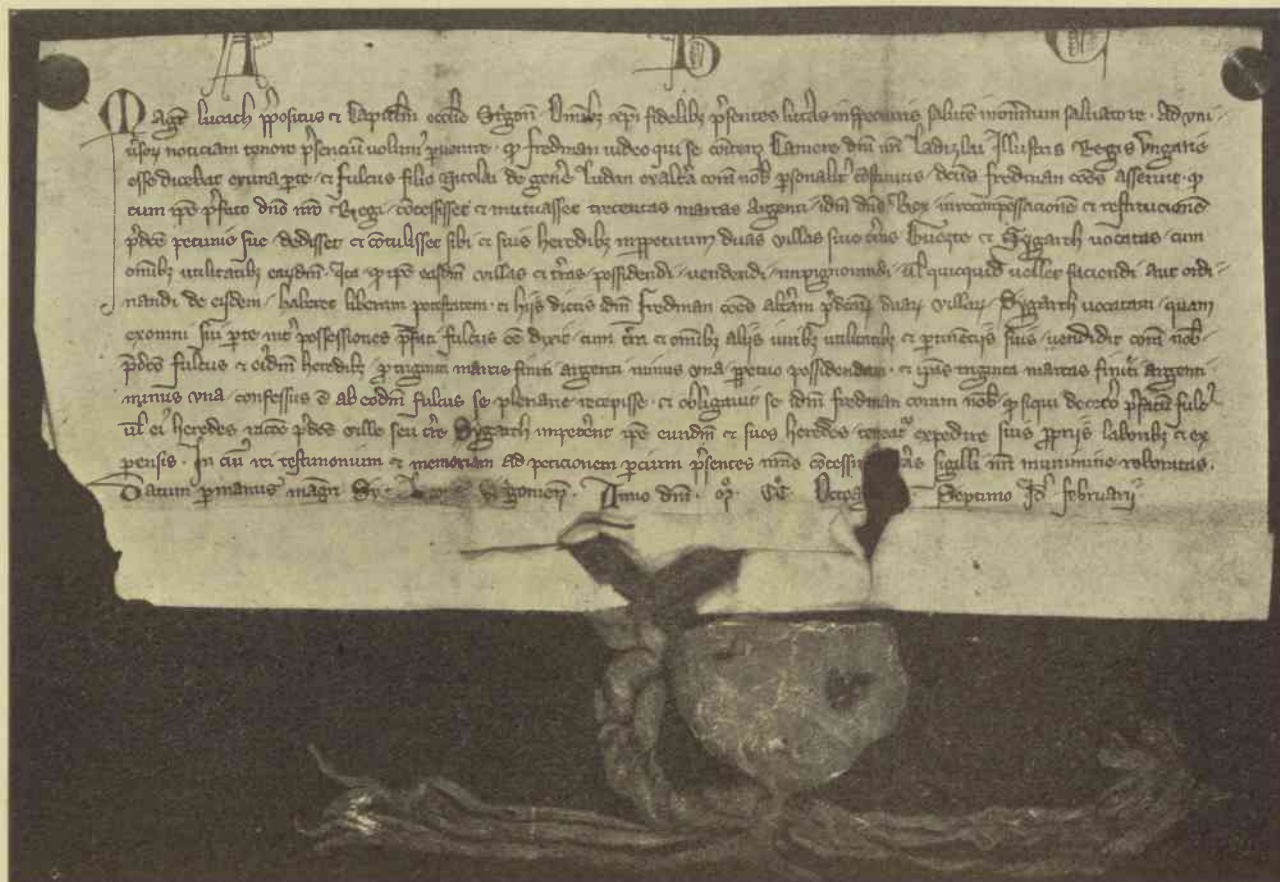 A B C
Magr̄ lucach p̄positus et Capitulm̄ ecclīe Strigon̄ Om̄ibꝫ xp̄i fidelibꝫ p̄sentes litt̄as inspecturis salutē in om̄ium saluatore · Ad vni
u̓soꝝ noticiam tenore p̄senciū uolum̄ puenire · ꝙ fredman iudeo qui se comitem Camere dn̄i nr̄i Ladizlai Illustris Regis Vngarie
esse dicebat ex una parte · et fulcus filio Nicolai de gen̄e ludan ex alt̄a coram nob̄ personalit̄ · dc̄us fredman comes asseruit · ꝙ
cum ip̄e p̄fato dn̄o nr̄o Regi · cōcessisset et mutuasset trecentas marcas Argenti · idm̄ dn̄s Rex in recompēssacionē et restitucionē
p̄dc̄e pecunie sue dedisset et cōtulisset sibi et suis heredibꝫ in ppetuum duas villas siue t̄ras et Sygarth uocatas · cum
om̄ibꝫ utilitatibꝫ eaꝝdm̄ · Ita ꝙ ip̄e easdm̄ villas et t̄ras · possidendi · uendendi · inpignorandi · ul̄ quicquid uellet faciendi aut ordi
nandi de eisdem · haberet liberam potestatem · et hijs dictis idm̄ fredman comes alt̄am p̄dc̄aꝝ duaꝝ villaꝝ · Sygarth uocatam · quam
ex om̄i sui parte int̄ possessiones p̄fati fulcus esse dixit · cum t̄ra et om̄ibꝫ alijs utilitatibꝫ et ptinēcijs suis · uendidit coram nob̄ ·
p̄dc̄o fulcus et eidm̄ heredibꝫ p triginta marcis finiti argenti minus una ppetuo possidendam · et ip̄as triginta marcas finiti argenti
minus una · confessus ē ab eodm̄ fulcus se plenarie recepisse · et obligauit se idm̄ fredman coram nob̄ · ꝙ si qui de cet̄o p̄fatū fulc̄
ul̄ ei heredes rac̄oe p̄dc̄e ville seu t̄re Sygarth inpeterent ip̄e eundm̄ et suos heredes · teneat̄ expedire suis pprijs laboribꝫ et ex
pensis · In cuius rei testimonium et memoriam ad peticionem parcium p̄sentes nr̄as cōcessim sigilli nr̄i munimine roboratas ·
Datum p manus magr̄i Sy Strigonien̄ · Anno dn̄i · ꝏ · CC · Octoa Septimo Id̄ · februarij